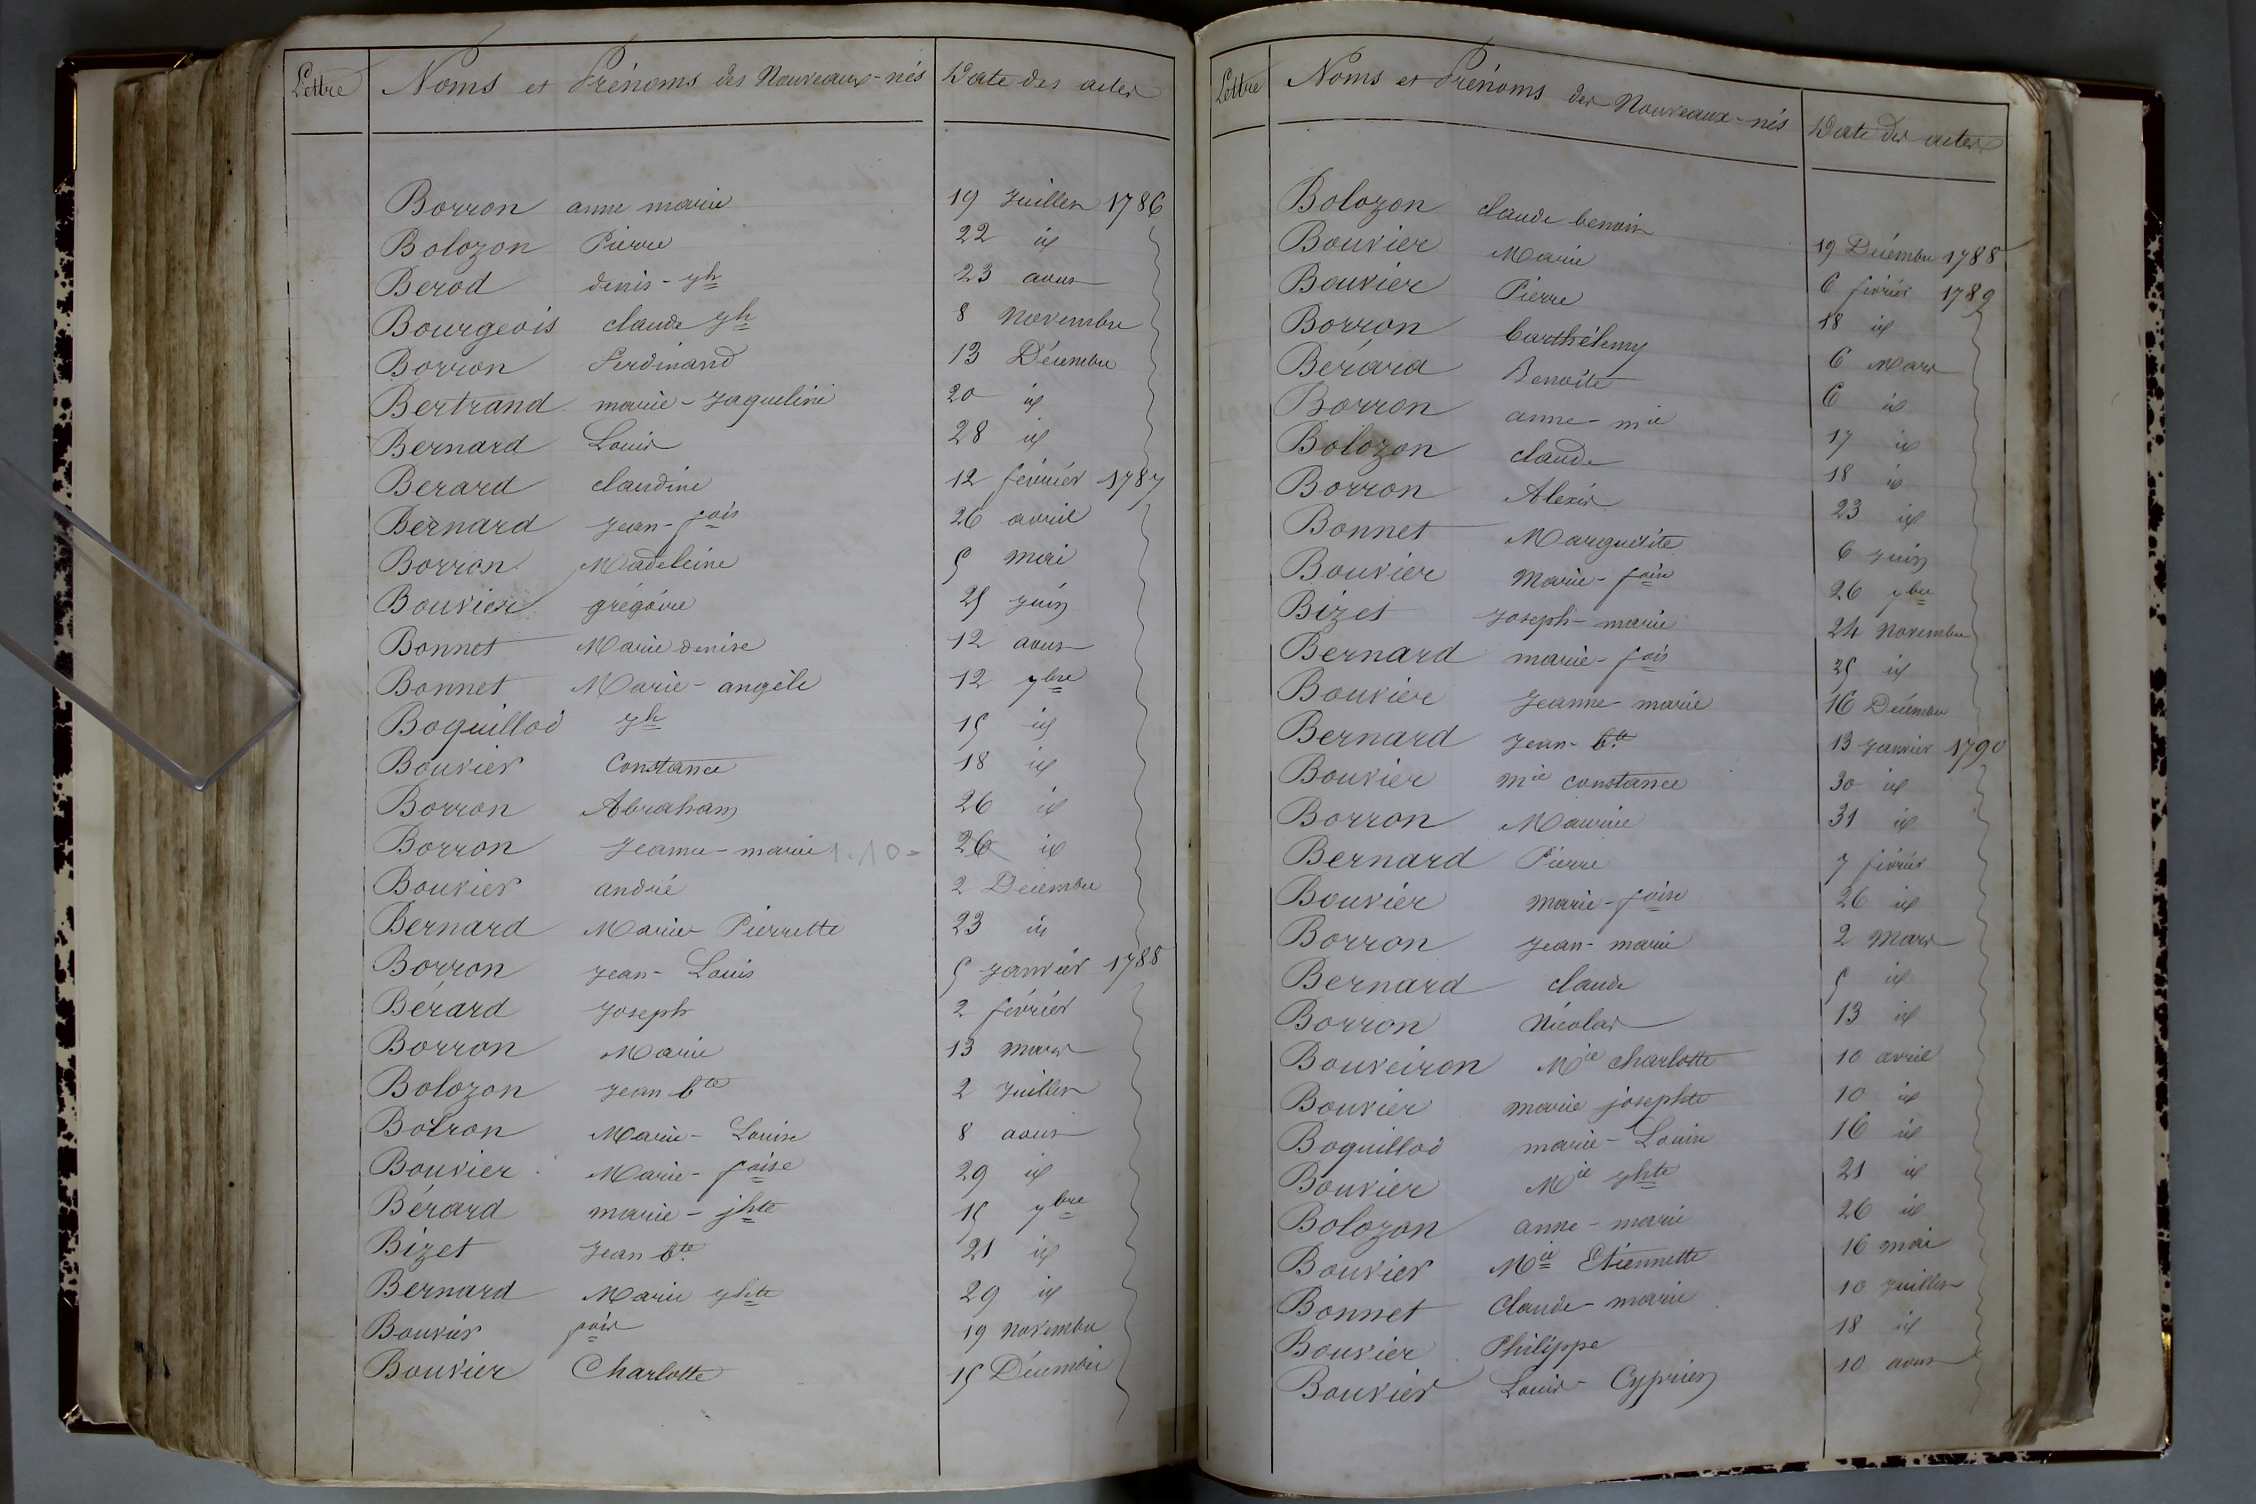 Lettre Noms et Prénoms des Nouveaux-nés Date des actes
Borron anne marie 19 Juillet 1786
Bolozon Pierre 22 id
Berod denis-jh 23 aout
Bourgeois claude jh 8 Novembre
Borron Ferdinand 13 Décembre
Bertrand marie-Jaqueline 20 id
Bernard Louis 28 id
Berard claudine 12 février 1787
Bernard Jean-fois 26 avril
Borron Madeleine 5 mai
Bouvier grégoire 25 juin
Bonnet Marie denise 12 aout
Bonnet Marie-angèle 12 7bre
Boquillod jh 15 id
Bouvier Constance 18 id
Borron Abraham 26 id
Borron Jeanne-marie 1.10- 26 id
Bouvier andré 2 Décembre
Bernard Marie Pierrette 23 id
Borron Jean-Louis 5 Janvier 1788
Bérard Joseph 2 février
Borron Marie 13 mars
Bolozon Jean bte 2 Juillet
Borron Marie-Louise 8 aout
Bouvier Marie-foise 29 id
Bérard marie-jhte 15 7bre
Bizet Jean bte 21 id
Bernard Marie jhte 29 id
Bouvier fois 19 Novembre
Bouvier Charlotte 15 Décembre
Lettre Noms et Prénoms des Nouveaux-nés Date des actes
Bolozon claude benoit 19 Décembre 1788
Bouvier Marie 6 février 1789
Bouvier Pierre 18 id
Borron barthélemy 6 Mars
Berard Benoîte 6 id
Borron anne-mie 17 id
Bolozon claude 18 id
Borron Alexis 23 id
Bonnet Marguerite 6 juin
Bouvier Marie-foise 26 7bre
Bizet Joseph-marie 24 Novembre
Bernard marie-fois 25 id
Bouvier Jeanne-marie 16 Décembre
Bernard Jean-bte 13 Janvier 1790
Bouvier mie constance 30 id
Borron Maurice 31 id
Bernard Pierre 7 février
Bouvier Marie-foise 26 id
Borron Jean-marie 2 Mars
Bernard claude 5 id
Borron Nicolas 13 id
Bouveiron Mie charlotte 10 avril
Bouvier marie josephte 10 id
Boquillod marie-Louise 16 id
Bouvier Mie jhte 21 id
Bolozon anne-marie 26 id
Bouvier Mie Etiennette 16 mai
Bonnet Claude-marie 10 Juillet
Bouvier Philippe 18 id
Bouvier Louis-Cyprien 10 aout